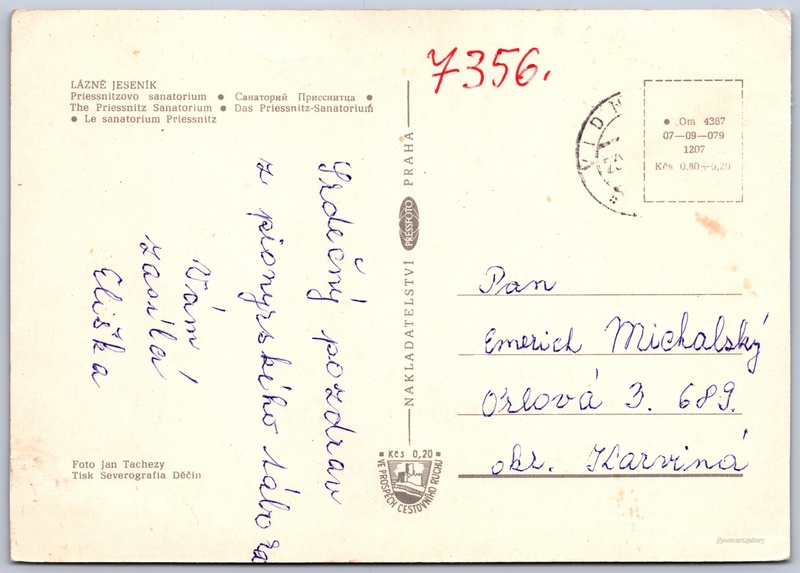 LÁZNĚ JESENÍK
Priessnitzovo sanatorium ● Санаторий Присснитца ●
The Priessnitz Sanatorium ● Das Priessnitz-Sanatorium
● Le sanatorium Priessnitz
7356.
VIDN
● Om 4387
07—09—079
1207
Kčs 0,80÷0,20
Srdečný pozdrav
z pionýrského tábora
Vám
zasílá
Eliška
NAKLADATELSTVÍ PRESSFOTO PRAHA
Pan
Emerich Michalský
Orlová 3. 689.
okr. Karviná
Foto Jan Tachezy
Tisk Severografia Děčín
Kčs 0,20
VE PROSPĚCH CESTOVNÍHO RUCHU
@postcard.gallery